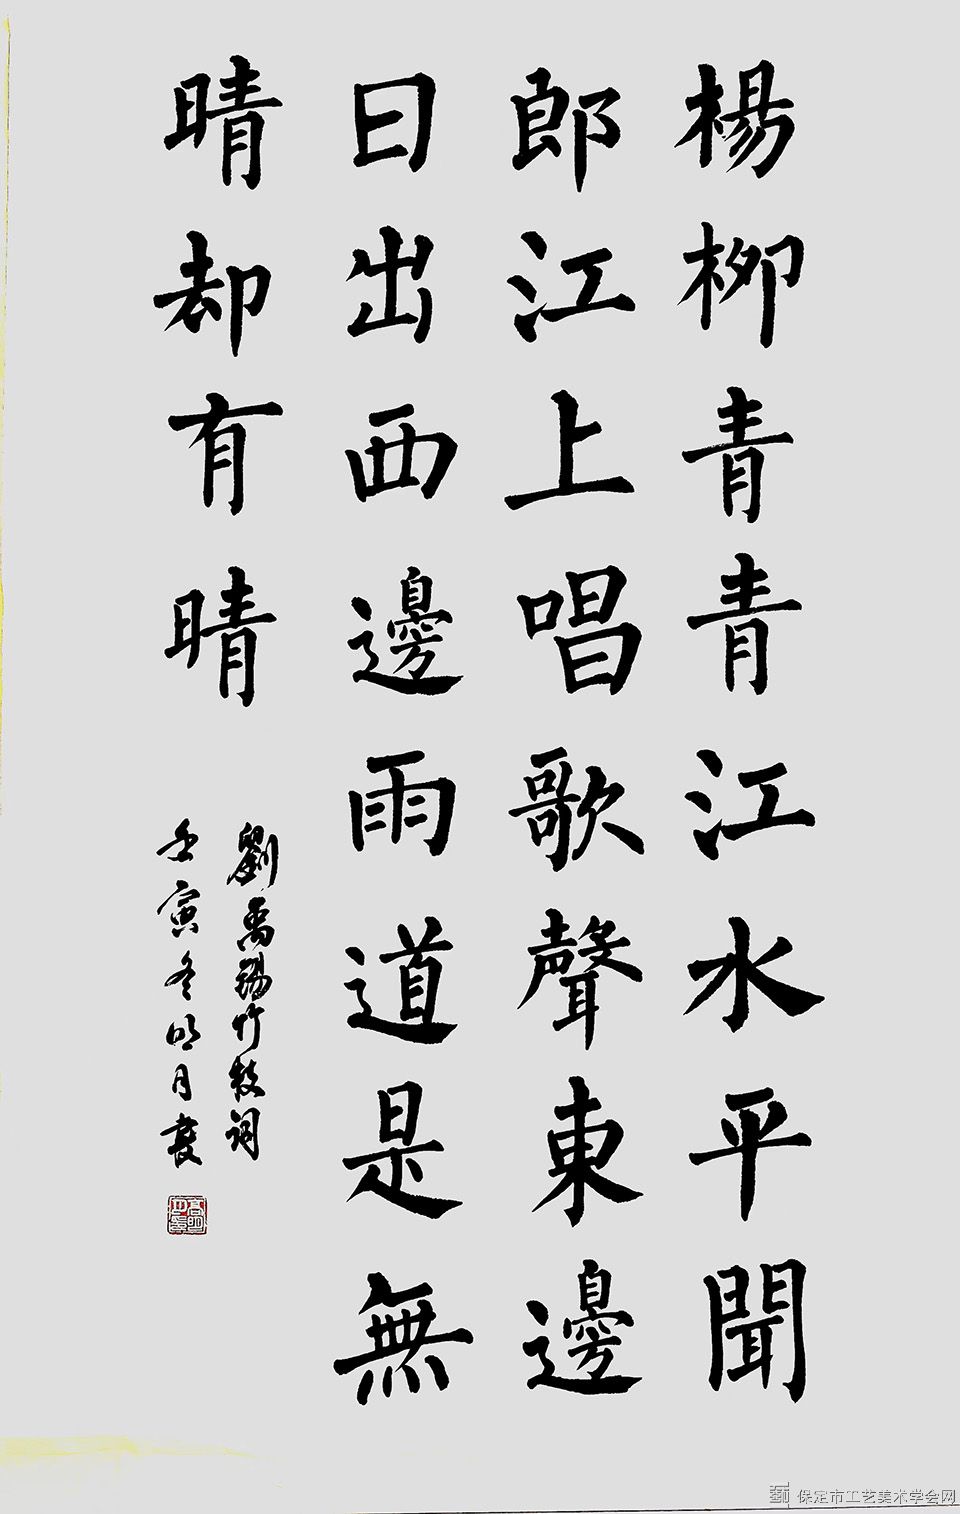 楊柳青青江水平聞
郎江上唱歌聲東邊
日出西邊雨道是無
晴却有晴
劉禹錫竹枝詞
壬寅冬明月書
保定市工艺美术学会网